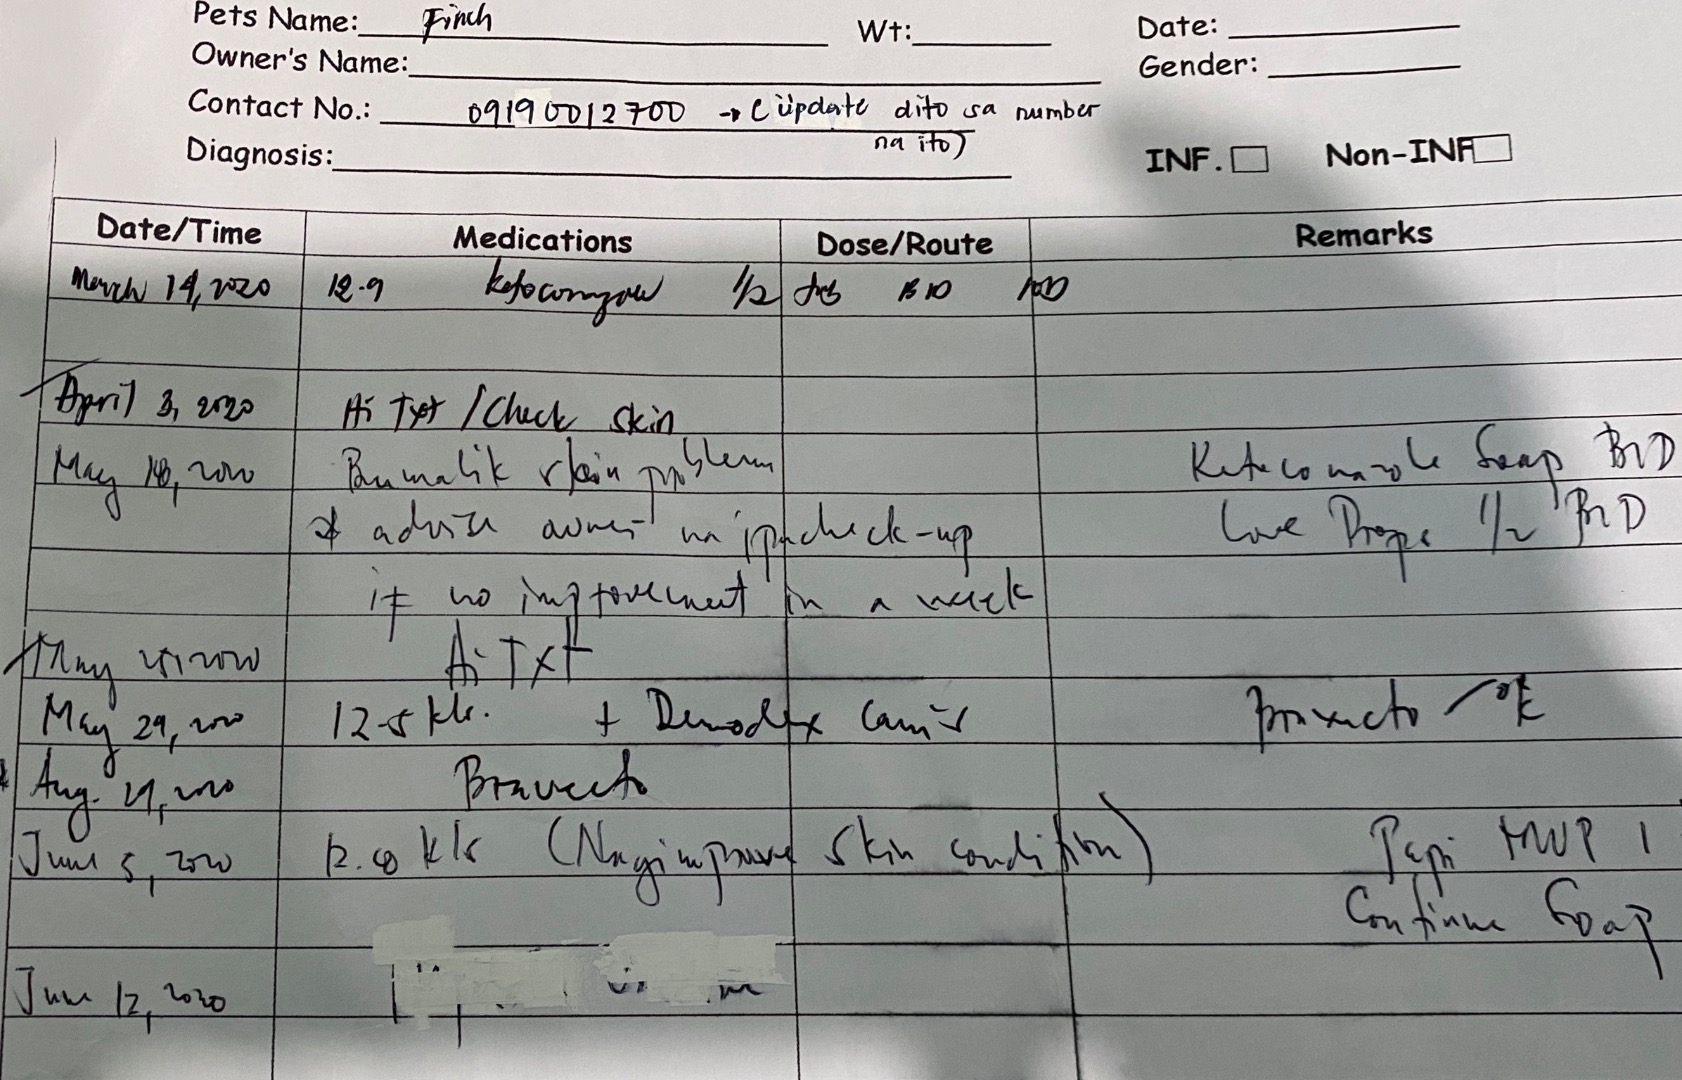 Pets Name: Finch Wt: Date:
Owner's Name: Gender:
Contact No.: 09190012700 → (update dito sa number
na ito)
Diagnosis: INF. Non-INF
Date/Time Medications Dose/Route Remarks
March 14, 2020 12.9 1/2 tab BID
April 3, 2020 Ai Txt / Check skin
May 18, 2020 Bumalik skin problem Ketoconazole Soap BID
* advise owner na ipacheck-up Love Drops 1/2 BID
if no improvement in a week
May 2020 Ai Txt
May 29, 2020 12.5 kls. + Demodex Canis Bravecto ok
Aug. 21, 2020 Bravecto
June 5, 2020 kls (Nagimprove skin condition) Papi MVP 1
Continue Soap
June 12, 2020